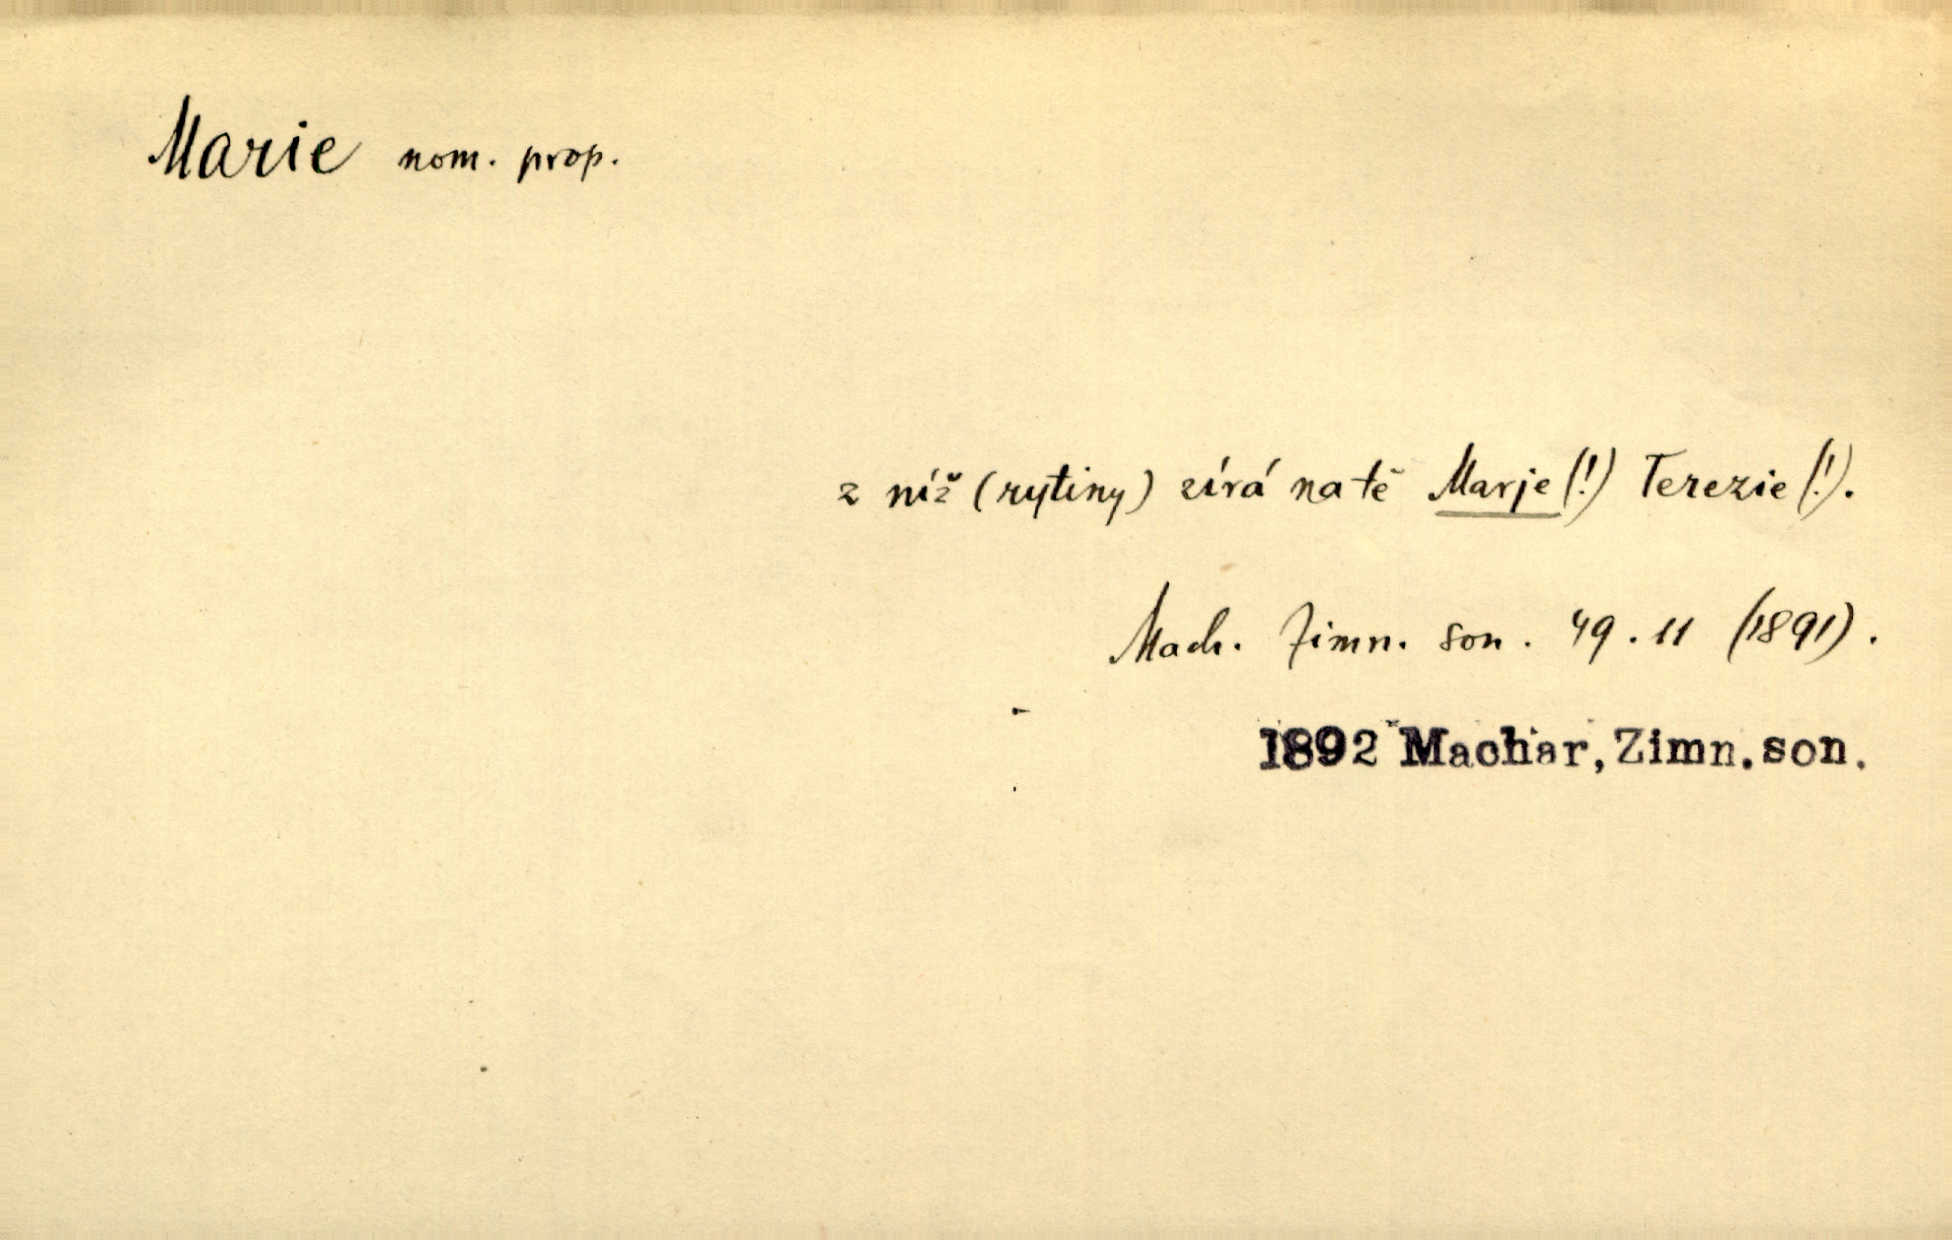 Marie nom. prop.
z níž (rytiny) zírá na tě Marje (!) Terezie (!).
Mach. Zimn. son. 49. 11 (1891).
1892 Machar, Zimn. son.